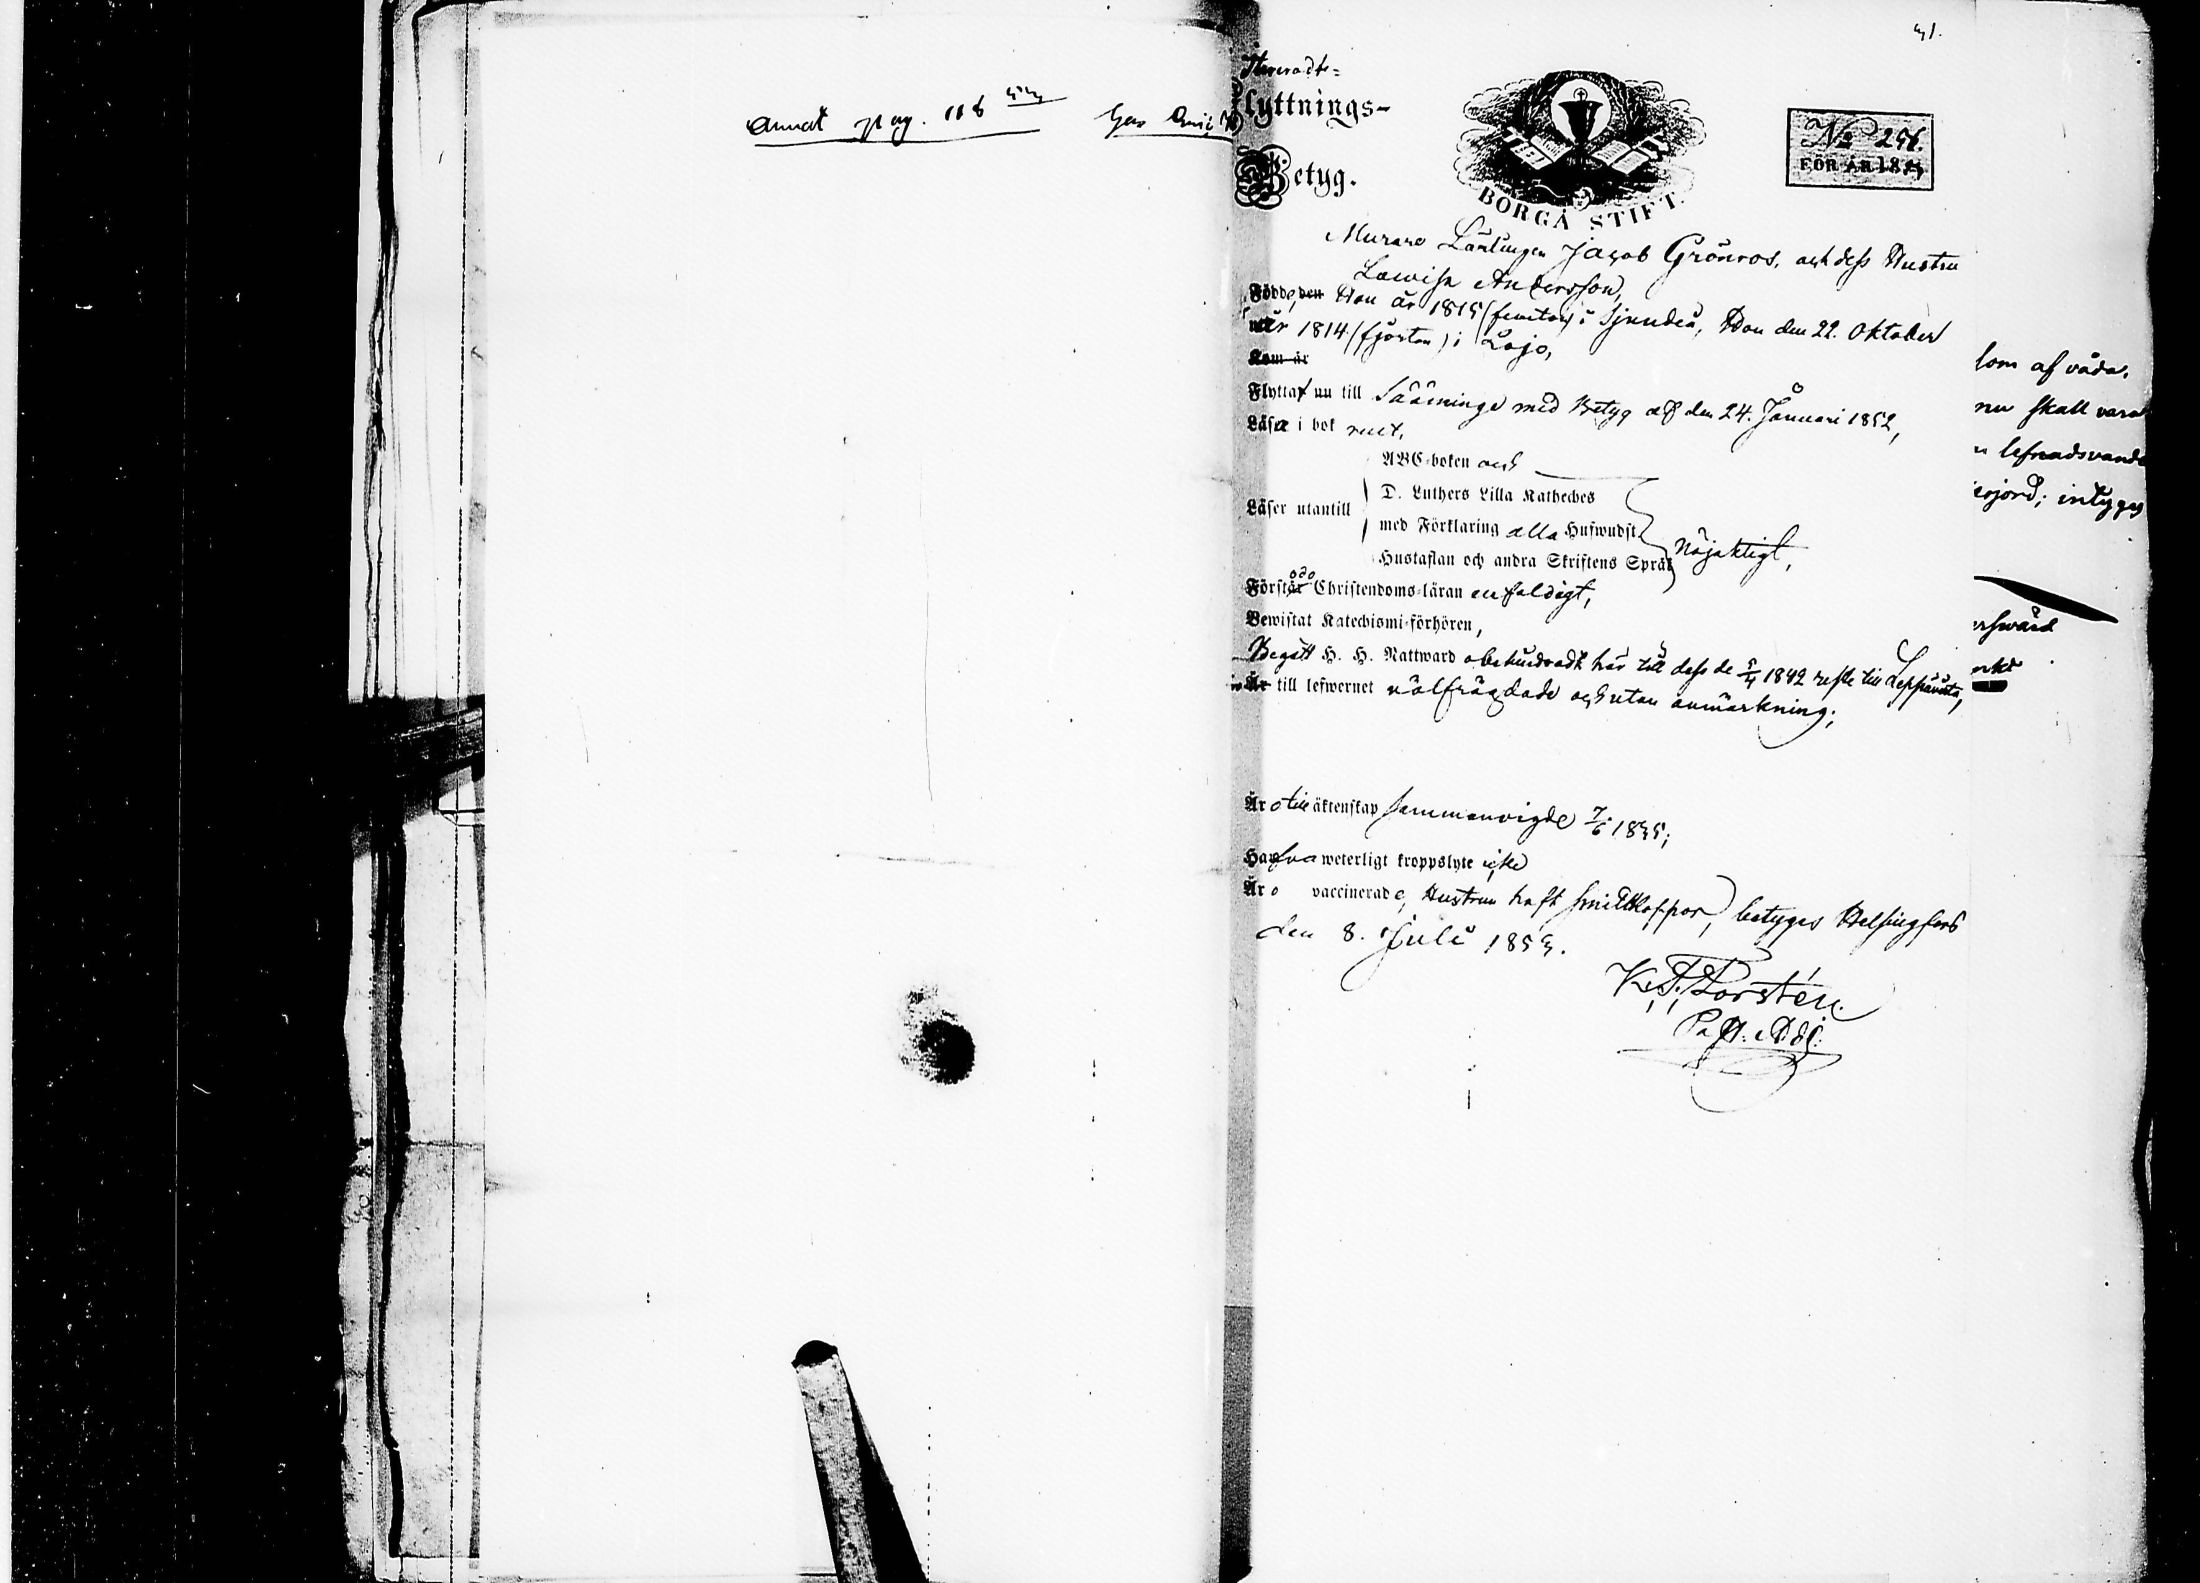 Annot pag. 118
41.
Itereradt-
Flyttnings-
Betyg.
BORGÅ STIFT.
No 256.
FÖR ÅR 1853
Murare Lärlingen Jacob Grönroos, och dess Hustru
Lowisa Andersson,
Födde, den Han år 1815 (femton) i Sjundeå, Hon den 22. Oktober
år 1814 (fjorton) i Lojo,
Kom år
Flytta nu till Sääminge med Betyg af den 24. Januari 1852,
Läsa i bok rent,
ABC-boken och
D. Luthers Lilla Kateches
Läser utantill
med Förklaring alla Hufwudst.
Hustaflan och andra Skriftens Språk
Nöjaktigt,
Förstå Christendoms-läran enfaldigt,
Bewistat Katechismi-förhören,
Begått H. H. Nattward obehindradt här till dess de 5/4 1842 reste till Leppävirta,
till lefwernet välfrägdade och utan anmärkning;
Äro till äktenskap sammanvigde 7/6 1835;
Hafva weterligt kroppslyte icke
Äro vaccinerade, Hustrun haft smittkoppor, betyges Helsingfors
den 8. Juli 1853.
K. F. Forstén.
Past. Adj.
som af våda.
nu skall vara
lefnadsvande
intyges